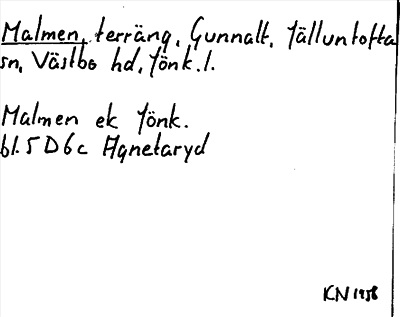 Malmen, terräng, Gunnalt, Jälluntofta
sn, Västbo hd, Jönk. l.
Malmen ek Jönk.
bl. 5D6c Agnetaryd
KN 1958